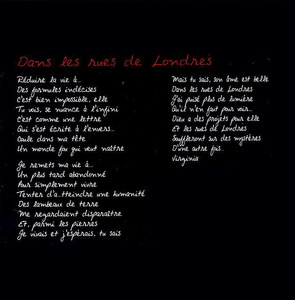 Dans les rues de Londres
Réduire la vie à...
Des formules indécises
C'est bien impossible, elle
Tu vois, se nuance à l'infini
C'est comme une lettre
Qui s'est écrite à l'envers...
Coule dans ma tête
Un monde fou qui veut naître
Je remets ma vie à...
Un plus tard abandonné
Pour simplement vivre
Tenter d'atteindre une humanité
Des lambeau de terre
Me regardaient disparaître
Et, parmi les pierres
Je vivais et j'espérais, tu sais
Mais tu sais, son âme est belle
Dans les rues de Londres
J'ai puisé plus de lumière
Qu'il n'en faut pour voir...
Dieu a des projets pour elle
Et les rues de Londres
Souffleront sur des mystères
D'une autre fois...
Virginia